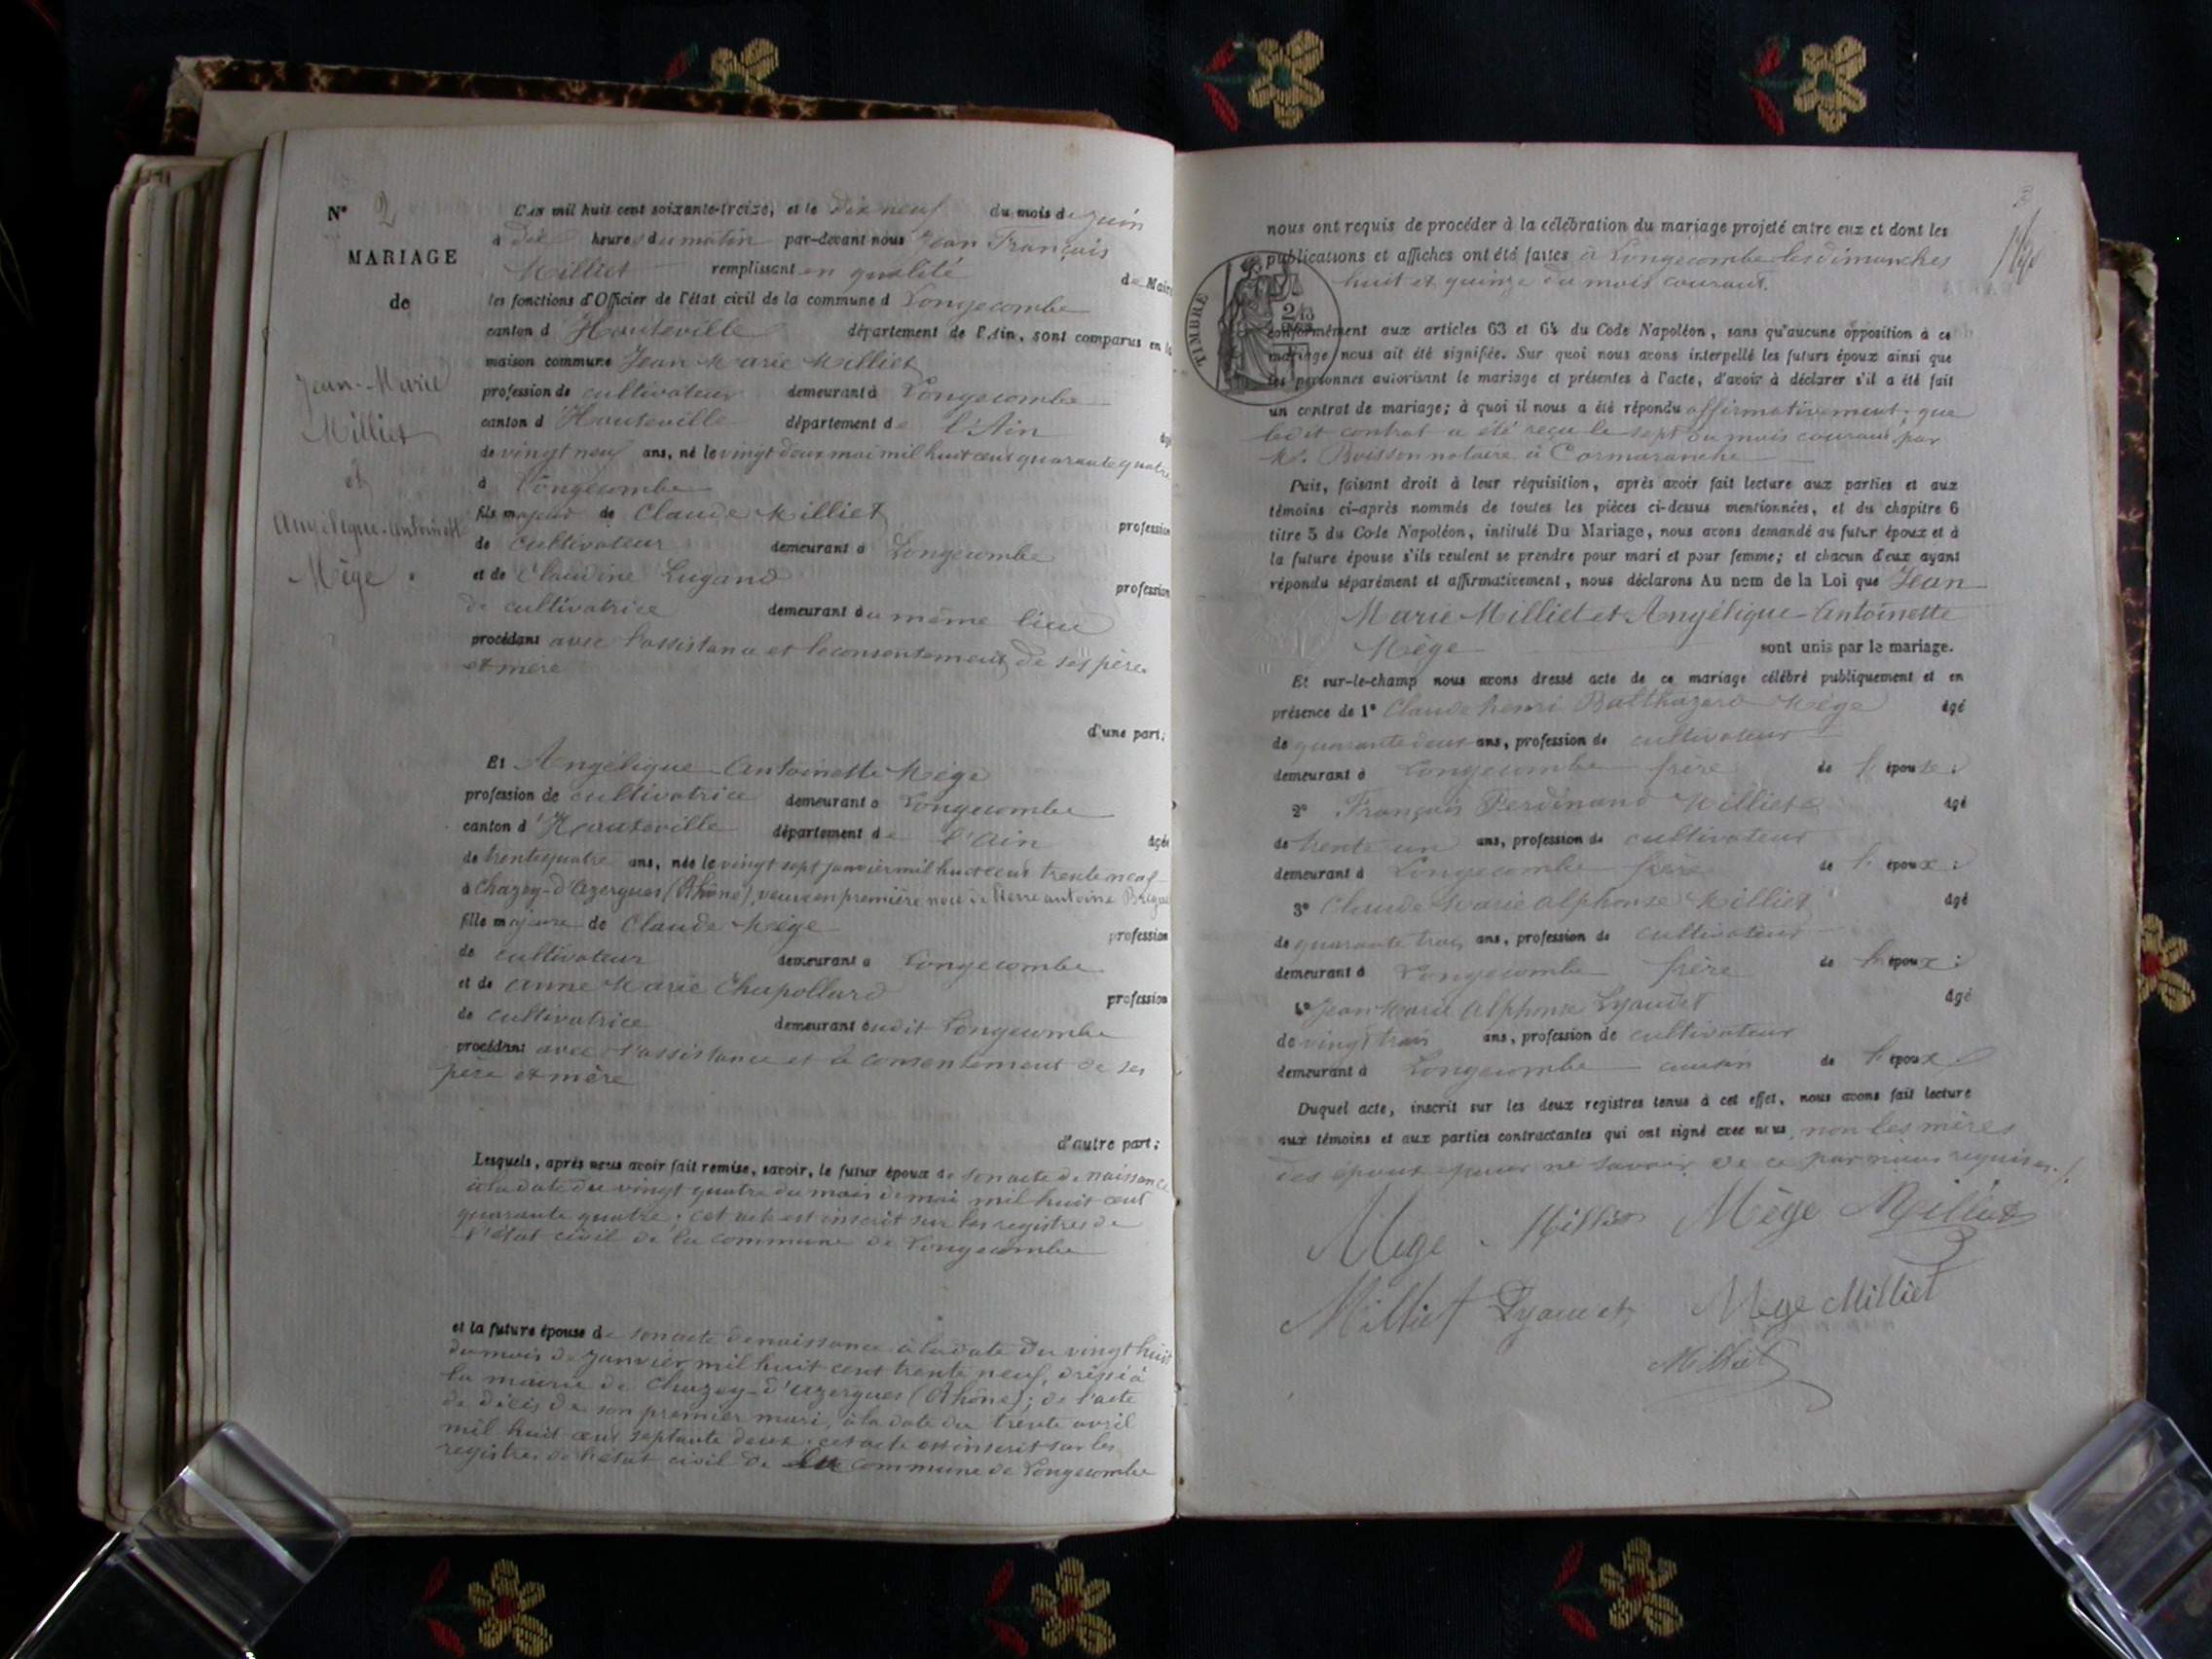 N° 2
MARIAGE
de
Jean-Marie
Milliet
et
Angélique-Antoinette
Mège.
L'an mil huit cent soixante-treize, et le dix neuf du mois de juin
à dix heures du matin par-devant nous Jean François
Milliet remplissant en qualité de Maire
les fonctions d'Officier de l'état civil de la commune d Longecombe
canton d'Hauteville département de l'Ain, sont comparus en la
maison commune Jean Marie Milliet
profession de cultivateur demeurant à Longecombe
canton d'Hauteville département de l'Ain âgé
de vingt neuf ans, né le vingt deux mai mil huit cent quarante quatre
à Longecombe
fils majeur de Claude Milliet profession
de cultivateur demeurant à Longecombe
et de Claudine Lugand profession
de cultivatrice demeurant au même lieu
procédant avec l'assistance et le consentement de ses père
et mère
d'une part;
Et Angélique-Antoinette Mège
profession de cultivatrice demeurant à Longecombe
canton d'Hauteville département de l'Ain âgée
de trente quatre ans, née le vingt sept janvier mil huit cent trente neuf
à Chazey-d'Azergues (Rhône), veuve en première noce de Pierre Antoine
fille majeure de Claude Mège profession
de cultivateur demeurant à Longecombe
et de Anne Marie Chapollard profession
de cultivatrice demeurant audit Longecombe
procédant avec l'assistance et le consentement de ses
père et mère
d'autre part;
Lesquels, après nous avoir fait remise, savoir, le futur époux de son acte de naissance
à la date du vingt quatre du mois de mai mil huit cent
quarante quatre; cet acte est inscrit sur les registres de
l'état civil de la commune de Longecombe
et la future épouse de son acte de naissance à la date du vingt huit
du mois de janvier mil huit cent trente neuf, dressé à
la mairie de Chazey-d'Azergues (Rhône); de l'acte
de décès de son premier mari, à la date du trente avril
mil huit cent septante deux; cet acte est inscrit sur les
registres de l'état civil de la commune de Longecombe
3
nous ont requis de procéder à la célébration du mariage projeté entre eux et dont les
publications et affiches ont été faites à Longecombe les dimanches
huit et quinze du mois courant.
TIMBRE
conformément aux articles 63 et 64 du Code Napoléon, sans qu'aucune opposition à ce
mariage nous ait été signifiée. Sur quoi nous avons interpellé les futurs époux ainsi que
les personnes autorisant le mariage et présentes à l'acte, d'avoir à déclarer s'il a été fait
un contrat de mariage; à quoi il nous a été répondu affirmativement; que
ledit contrat a été reçu le sept du mois courant par
Me. Buisson notaire à Cormaranche
Puis, faisant droit à leur réquisition, après avoir fait lecture aux parties et aux
témoins ci-après nommés de toutes les pièces ci-dessus mentionnées, et du chapitre 6
titre 5 du Code Napoléon, intitulé Du Mariage, nous avons demandé au futur époux et à
la future épouse s'ils veulent se prendre pour mari et pour femme; et chacun d'eux ayant
répondu séparément et affirmativement, nous déclarons Au nom de la Loi que Jean
Marie Milliet et Angélique-Antoinette
Mège sont unis par le mariage.
Et sur-le-champ nous avons dressé acte de ce mariage célébré publiquement et en
présence de 1° Claude henri Balthazard Mège âgé
de quarante deux ans, profession de cultivateur
demeurant à Longecombe frère de l'épouse;
2° François Ferdinand Milliet âgé
de trente un ans, profession de cultivateur
demeurant à Longecombe frère de l'époux;
3° Claude Marie Alphonse Milliet âgé
de quarante trois ans, profession de cultivateur
demeurant à Longecombe frère de l'époux;
4° Jean Marie Alphonse Lyaudet âgé
de vingt trois ans, profession de cultivateur
demeurant à Longecombe cousin de l'époux
Duquel acte, inscrit sur les deux registres tenus à cet effet, nous avons fait lecture
aux témoins et aux parties contractantes qui ont signé avec nous, non les mères
des époux pour ne savoir de ce par nous requises.
Mège Milliet Mège Milliet
Milliet Lyaudet Mège Milliet
Milliet